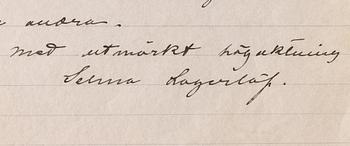 andra.
med utmärkt högaktning
Selma Lagerlöf.